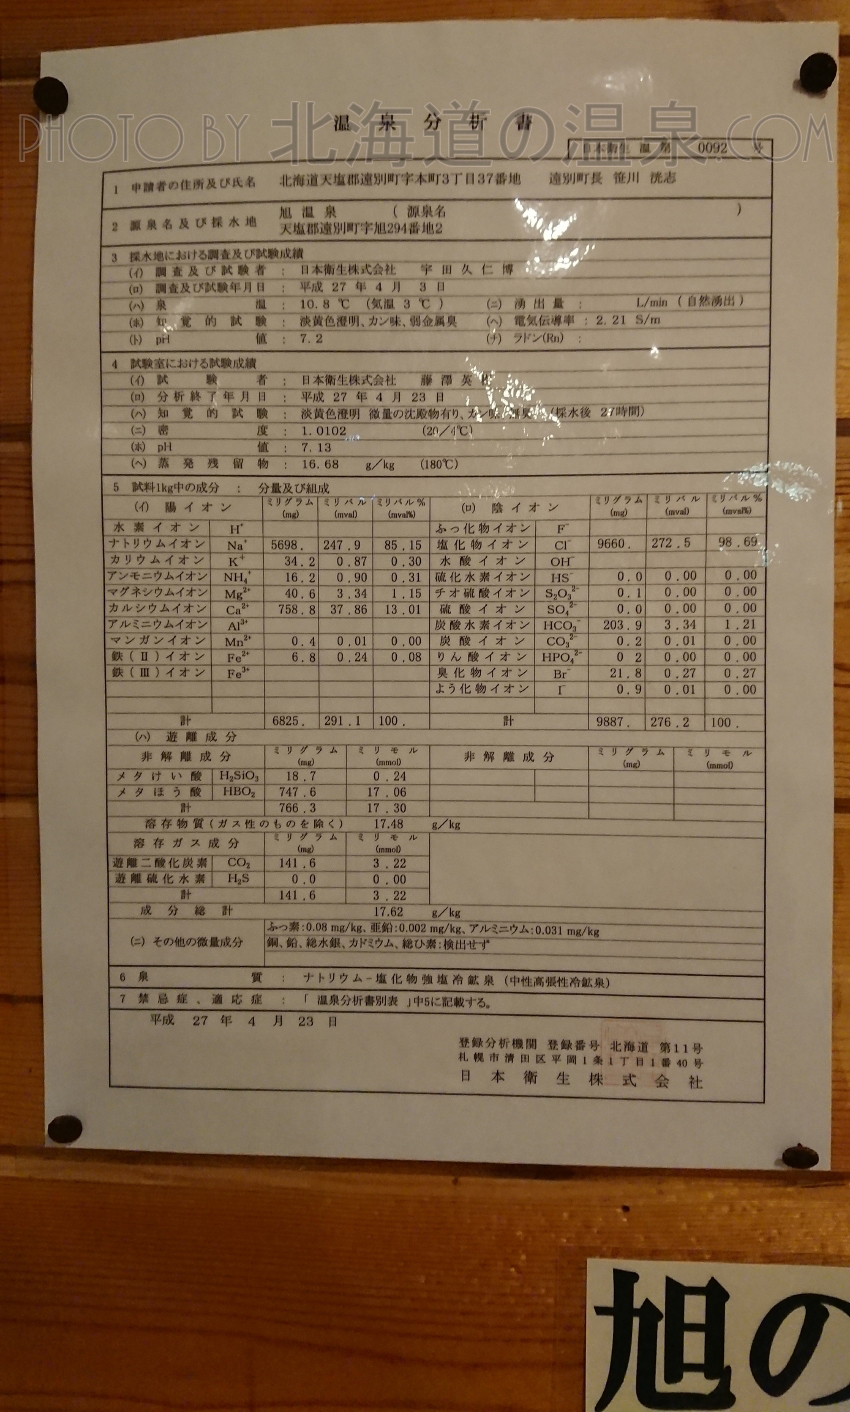 PHOTO BY 北海道の温泉.COM
温泉分析書
日本衛生 温 第 0092 号
1 申請者の住所及び氏名 北海道天塩郡遠別町字本町3丁目37番地 遠別町長 笹川 洸志
2 源泉名及び採水地 旭温泉 ( 源泉名 )
天塩郡遠別町字旭294番地2
3 採水地における調査及び試験成績
(イ) 調査及び試験者 : 日本衛生株式会社 宇田久仁博
(ロ) 調査及び試験年月日 : 平成 27 年 4 月 3 日
(ハ) 泉温 : 10.8 ℃ (気温 3 ℃ ) (ニ) 湧出量 : L/min ( 自然湧出 )
(ホ) 知覚的試験 : 淡黄色澄明、カン味、弱金属臭 (ヘ) 電気伝導率 : 2.21 S/m
(ト) pH : 7.2 (チ) ラドン(Rn) :
4 試験室における試験成績
(イ) 試験者 : 日本衛生株式会社 藤澤英
(ロ) 分析終了年月日 : 平成 27 年 4 月 23 日
(ハ) 知覚的試験 : 淡黄色澄明 微量の沈殿物有り、カン味 (採水後 27時間)
(ニ) 密度 : 1.0102 (20/4℃)
(ホ) pH値 : 7.13
(ヘ) 蒸発残留物 : 16.68 g/kg (180℃)
5 試料1kg中の成分 : 分量及び組成
(イ) 陽イオン ミリグラム(mg) ミリバル(mval) ミリバル%(mval%) (ロ) 陰イオン ミリグラム(mg) ミリバル(mval) ミリバル%(mval%)
水素イオン H⁺ ふっ化物イオン F⁻
ナトリウムイオン Na⁺ 5698. 247.9 85.15 塩化物イオン Cl⁻ 9660. 272.5 98.69
カリウムイオン K⁺ 34.2 0.87 0.30 水酸イオン OH⁻
アンモニウムイオン NH₄⁺ 16.2 0.90 0.31 硫化水素イオン HS⁻ 0.0 0.00 0.00
マグネシウムイオン Mg²⁺ 40.6 3.34 1.15 チオ硫酸イオン S₂O₃²⁻ 0.1 0.00 0.00
カルシウムイオン Ca²⁺ 758.8 37.86 13.01 硫酸イオン SO₄²⁻ 0.0 0.00 0.00
アルミニウムイオン Al³⁺ 炭酸水素イオン HCO₃⁻ 203.9 3.34 1.21
マンガンイオン Mn²⁺ 0.4 0.01 0.00 炭酸イオン CO₃²⁻ 0.2 0.01 0.00
鉄(Ⅱ)イオン Fe²⁺ 6.8 0.24 0.08 りん酸イオン HPO₄²⁻ 0.2 0.00 0.00
鉄(Ⅲ)イオン Fe³⁺ 臭化物イオン Br⁻ 21.8 0.27 0.27
よう化物イオン I⁻ 0.9 0.01 0.00
計 6825. 291.1 100. 計 9887. 276.2 100.
(ハ) 遊離成分
非解離成分 ミリグラム(mg) ミリモル(mmol) 非解離成分 ミリグラム(mg) ミリモル(mmol)
メタけい酸 H₂SiO₃ 18.7 0.24
メタほう酸 HBO₂ 747.6 17.06
計 766.3 17.30
溶存物質(ガス性のものを除く) 17.48 g/kg
溶存ガス成分 ミリグラム(mg) ミリモル(mmol)
遊離二酸化炭素 CO₂ 141.6 3.22
遊離硫化水素 H₂S 0.0 0.00
計 141.6 3.22
成分総計 17.62 g/kg
(ニ) その他の微量成分 ふっ素:0.08 mg/kg、亜鉛:0.002 mg/kg、アルミニウム:0.031 mg/kg
銅、鉛、総水銀、カドミウム、総ひ素:検出せず
6 泉質 : ナトリウム-塩化物強塩冷鉱泉 (中性高張性冷鉱泉)
7 禁忌症、適応症 : 「 温泉分析書別表 」中5に記載する。
平成 27 年 4 月 23 日
登録分析機関 登録番号 北海道 第11号
札幌市清田区平岡1条1丁目1番40号
日本衛生株式会社
旭の